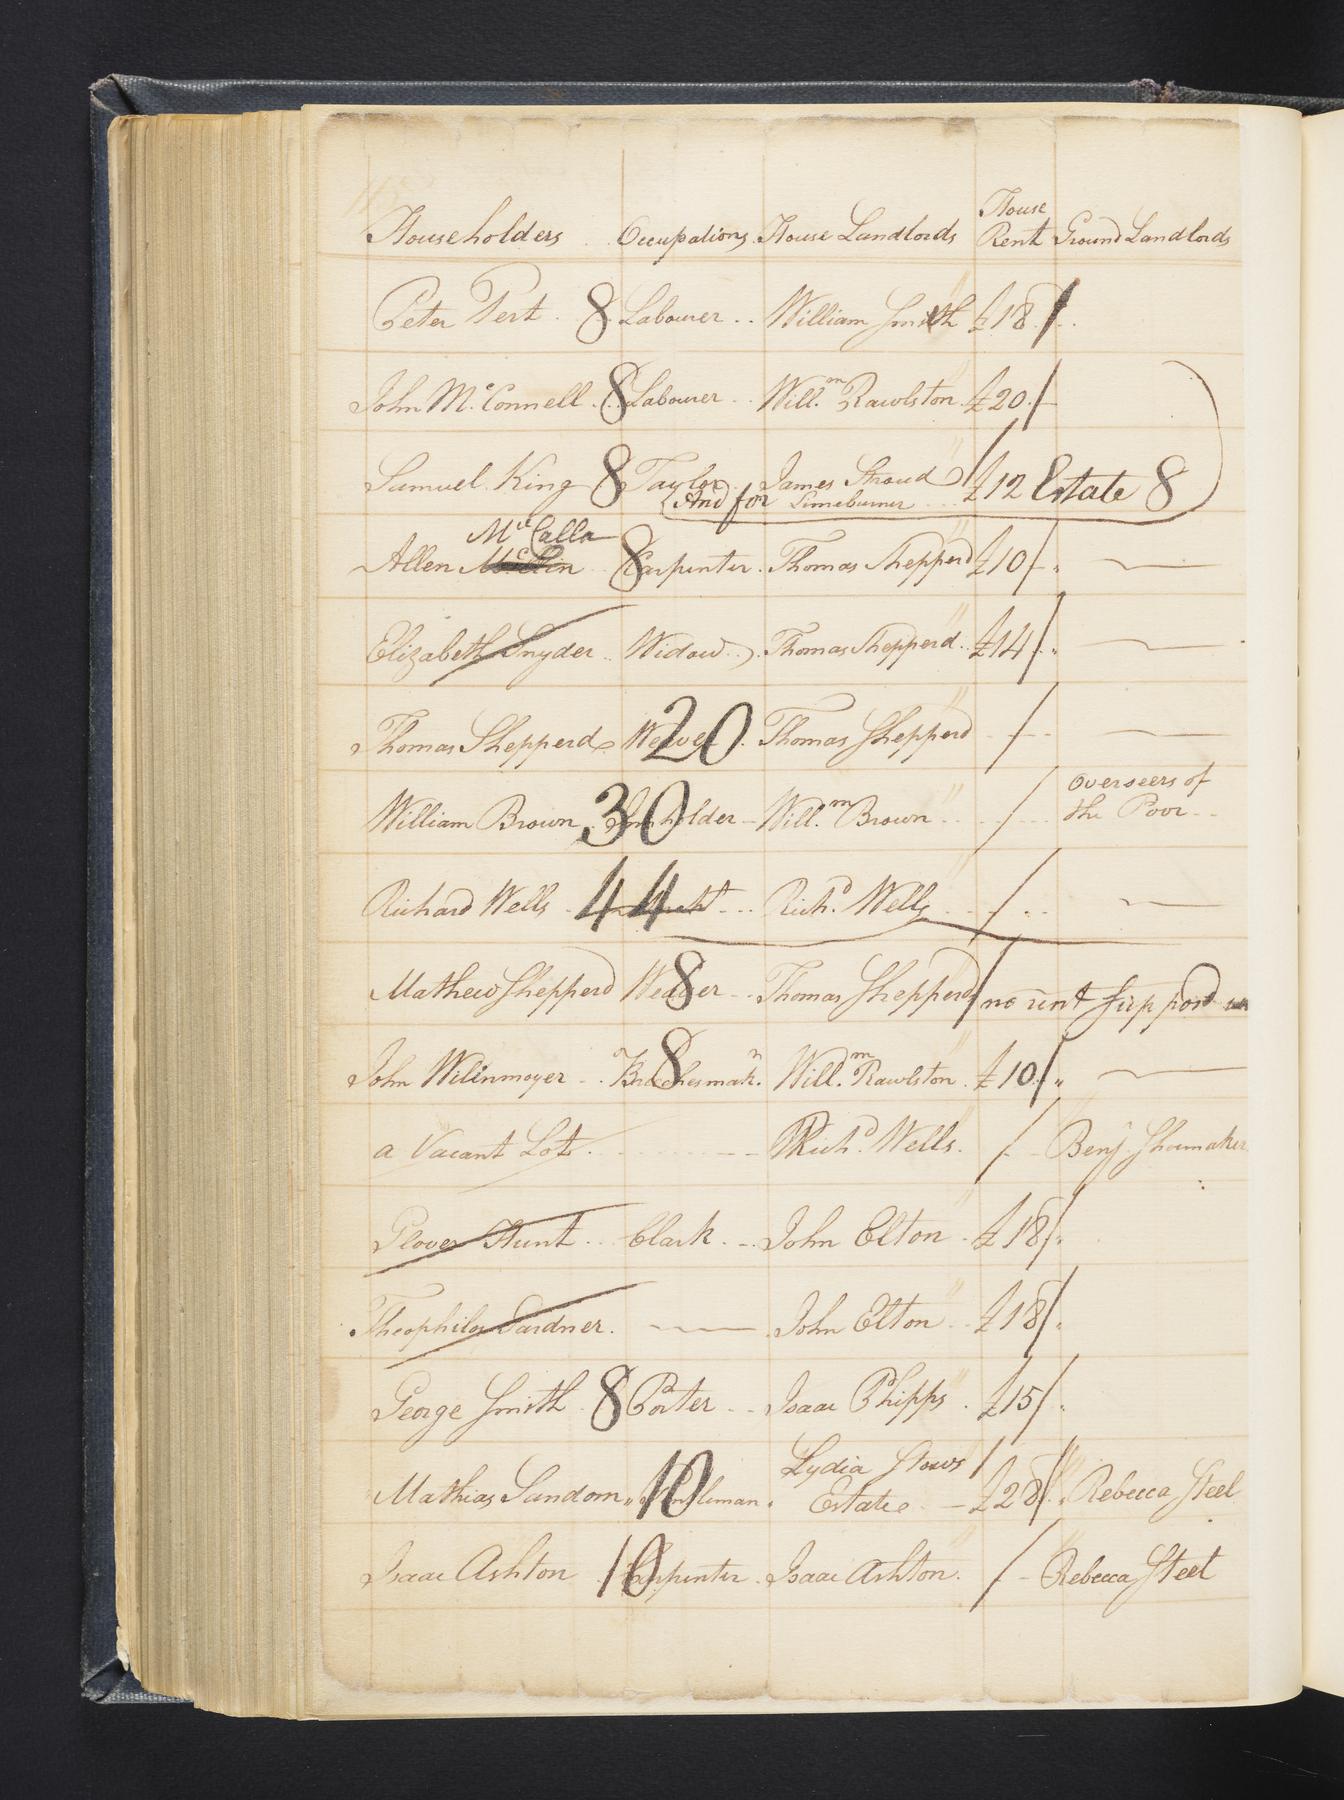 Householders Occupations House Landlords House Rent Ground Landlords
Peter Pert 8 Labourer William Smith £18
John McConnell 8 Labourer Will.m Rawlston £20
Samuel King 8 Taylor James Stroud £12 Estate 8
And for Limeburner
McCalla
Allen 8 Carpenter Thomas Shepperd £10
Elizabeth Snyder Widow Thomas Shepperd £14
Thomas Shepperd Weaver 20 Thomas Shepperd
William Brown 30 Innholder Will.m Brown Overseers of the Poor
Richard Wells 44 Rich.d Wells
Mathew Shepperd Weaver 8 Thomas Shepperd no rent
John Wilinmoyer 8 Breechesmak.r Will.m Rawlston £10
a Vacant Lot Rich.d Wells Benj Shoemaker
Glover Hunt Clark John Elton £18
Theophilos Gardner John Elton £18
George Smith 8 Porter Isaac Phipps £15
Mathias Sandom 10 Gentleman Lydia Stows Estate £28 Rebecca Steel
Isaac Ashton 10 Carpenter Isaac Ashton Rebecca Steel